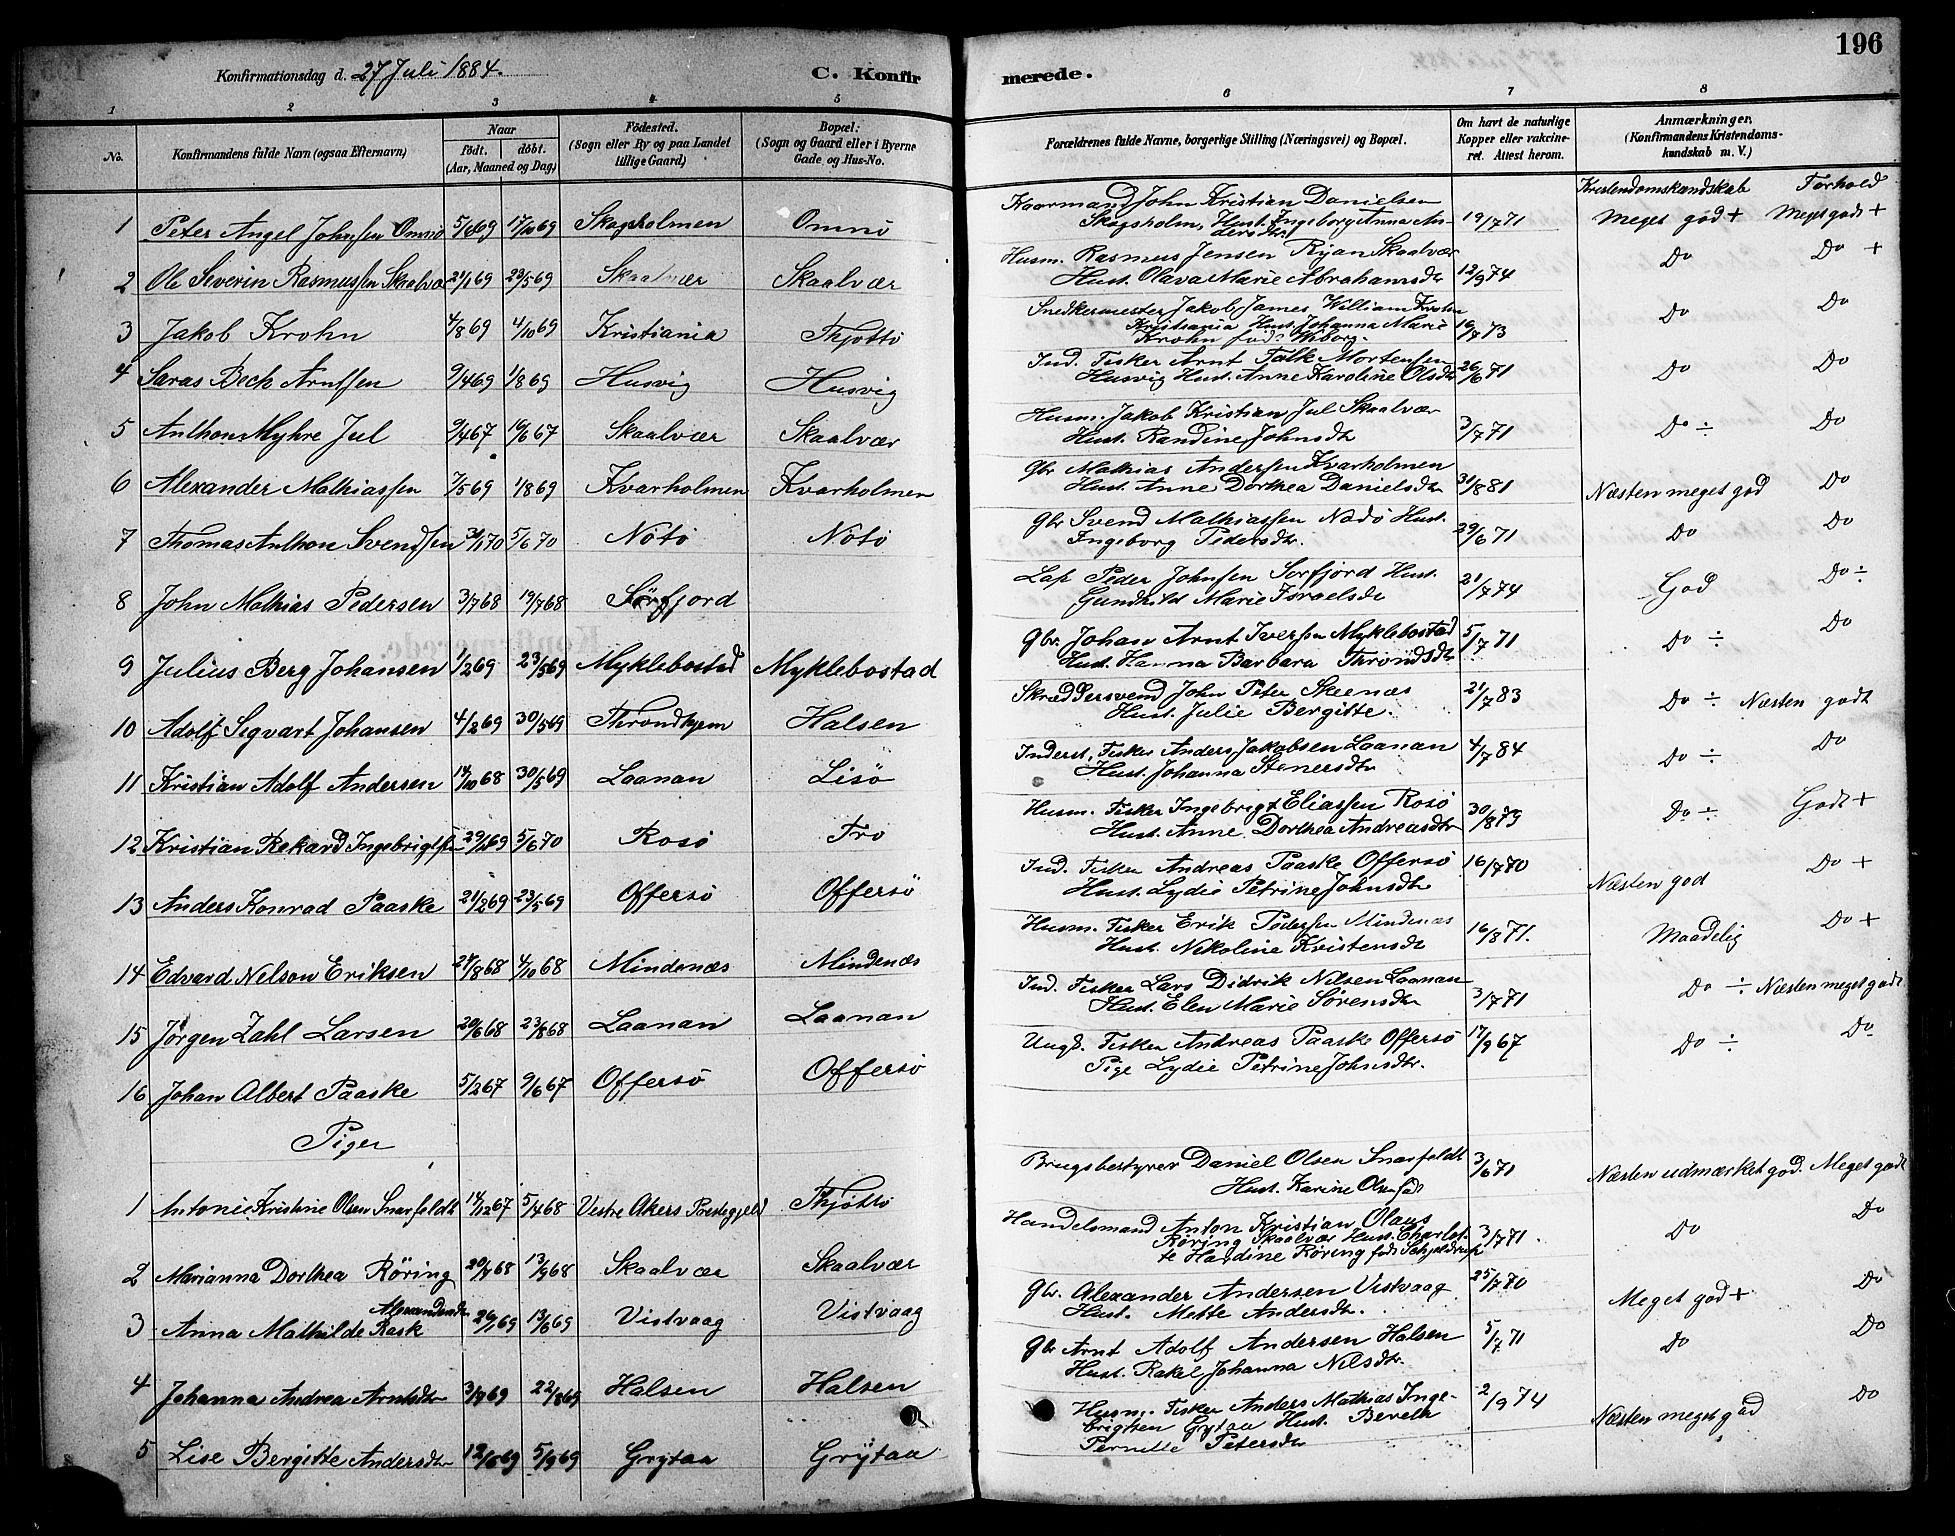 196
Konfirmationsdag d. 27 Juli 1884.
C. Konfirmerede.
1 2 3 4 5 6 7 8
No.
Konfirmandens fulde Navn (ogsaa Efternavn)
Naar
født. døbt.
(Aar, Maaned og Dag)
Fødested.
(Sogn eller By og paa Landet
tillige Gaard)
Bopæl:
(Sogn og Gaard eller i Byerne
Gade og Hus-No.
Forældrenes fulde Navne, borgerlige Stilling (Næringsvei) og Bopæl.
Om havt de naturlige
Kopper eller vakcine-
ret. Attest herom.
Anmærkninger.
(Konfirmandens Kristendoms-
kundskab m. V.)
Kristendomskundskab Forhold
1 Peter Angel Johnsen Omnø 5/6 69 17/10 69 Skogsholmen Omnö
Kaarmand John Kristian Danielsen
Skogsholm, Hust. Ingeborg Anna An-
dersdtr 19/7 71 Meget god + Meget godt +
2 Ole Severin Rasmussen Skaalvær 21/1 69 23/5 69 Skaalvær Skaalvær
Husm. Rasmus Jensen Ryan Skaalvær
Hust. Olava Marie Abrahamsdtr 12/9 74 Do Do +
3 Jakob Krohn 4/8 69 4/10 69 Kristiania Thjøtto
Snedkermester Jakob James William Krohn
Kristiania Hust. Johanna Marie
Krohn født Wiborg. 16/7 73 Do Do
4 Saras Bech Arntsen 9/4 69 1/8 69 Husvig Husvig
Ind. Fisker Arnt Falk Mortensen
Husvig Hust. Anne Karoline Olsdtr 26/6 71 Do Do
5 Anthon Myhre Jul 9/4 67 10/6 67 Skaalvær Skaalvær
Husm. Jakob Kristian Jul Skaalvær
Hust. Randine Johnsdtr 3/7 71 Do ÷ Do
6 Alexander Mathiassen 7/5 69 1/8 69 Kvarholmen Kvarholmen
Gbr Mathias Anderssen Kvarholmen
Hust. Anne Dorthea Danielsdtr 31/8 81 Næsten meget god Do
7 Thomas Anthon Svendsen 31/1 70 5/6 70 Nötö Nötö
Gbr Svend Mathiassen Nodö Hust.
Ingeborg Pedersdtr. 29/6 71 Do Do
8 John Mathias Pedersen 3/7 68 19/7 68 Sörfjord
Lap Peder Johnsen Sorfjord Hust.
Gundhild Marie Israelsdr 21/7 74 God Do ÷
9 Julius Berg Johansen 1/2 69 23/5 69 Myklebostad Myklebostad
Gbr. Johan Arnt Iversen Myklebostad
Hust. Hanna Barbara Throndsdtr 5/7 71 Do ÷ Do
10 Adolf Segvart Johansen 4/2 69 30/5 69 Throndhjem Halsen
Skræddersvend John Peter Skeenæs
Hust. Julie Bergitte. 21/7 83 Do ÷ Næsten godt
11 Kristian Adolf Andersen 14/10 68 30/5 69 Laanan Lisö
Inderst, Fisker Anders Jakobsen Laanan
Hust. Johanna Stenersdtr 4/7 84 Do ÷ Do
12 Kristian Rekard Ingebrigtsen 29/1 69 5/6 70 Rosö Tro
Husm. Fisker Ingebrigt Eliassen Rosö
Hust. Anne Dorthea Andreasdtr 30/8 79 Do ÷ Godt +
13 Anders Konrad Paaske 21/2 69 23/5 69 Offersö Offersö
Ind. Fisker Andreas Paaske Offersö
Hust. Lydie Petrine Johnsdtr 16/7 70 Næsten god Do +
14 Edvard Nelson Eriksen 24/8 68 4/10 68 Mindenæs Mindenæs
Husm. Fisker Erik Pederssen Mindenæs
Hust. Nikoline Kristensdr 16/8 71. Maadelig Do +
15 Jørgen Zahl Larsen 20/6 68 23/8 68 Laanan Laanan
Ind. Fisker Lars Didrik Nilsen Laanan
Hust. Elen Marie Sörensdtr 3/7 71 Do ÷ Næsten meget godt
16 Johan Albert Paaske 5/2 67 9/6 67 Offersö Offersö
Ungk. Fisker Andreas Paaske Offersö
Pige Lydie Petrine Johnsdtr. 17/9 67 Do ÷ Do
Piger
1 Antonie Kristine Olsen Snarfeldt 14/12 67 5/4 68 Vestre Akers Præstegjeld Thjøtto
Brugsbestyrer Daniel Olsen Snarfeldt
Hust. Karine Olsen født 3/6 71 Næsten udmærket god. Meget godt
2 Marianna Dorthea Röring 20/7 68 13/9 68 Skaalvær Skaalvær
Handelsmand Anton Kristian Olaus
Röring Skaalvær Hust. Charlot-
te Hardine Röring født Schjeldrup 3/7 71. Do Do
3 Anna Mathilde Alexandersdtr Rask 26/1 69 13/6 69 Vistvaag Vistvaag
Gbr. Alexander Andersen Vistvaag
Hust. Mette Andersdtr. 25/7 70 Meget god + Do
4 Johanna Andrea Arntsdtr 3/7 69 22/8 69 Halsen Halsen
Gbr Arnt Adolf Andersen Halsen
Hust. Rakel Johanna Nilsdtr. 5/7 71 Do Do
5 Lise Bergitte Andersdtr 12/6 69 5/9 69 Grytaa Grytaa
Husm. Fisker Anders Mathias Inge-
brigtsen Grytaa Hust. Bereth
Pernille Petersdtr 2/9 74 Næsten meget god Do